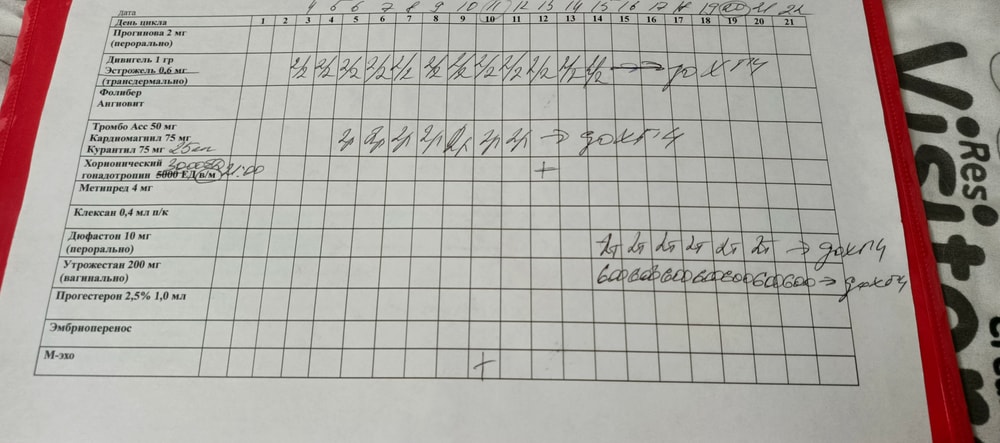 Дата 4 5 6 7 8 9 10 11 12 13 14 15 16 17 18 19 20 21 22
День цикла 1 2 3 4 5 6 7 8 9 10 11 12 13 14 15 16 17 18 19 20 21
Прогинова 2 мг
(перорально)
Дивигель 1 гр
Эстрожель 0,6 мг
(трансдермально)
2/2 2/2 2/2 2/2 2/2 2/2 2/2 2/2 2/2 2/2 2/2 2/2 → до ХГЧ
Фолибер
Ангиовит
Тромбо Асс 50 мг
Кардиомагнил 75 мг
Курантил 75 мг 25мг
2р 2р 2р 2р 2р 2р 2р → до ХГЧ
Хорионический
гонадотропин 5000 ЕД в/м 21:00 +
Метипред 4 мг
Клексан 0,4 мл п/к
Дюфастон 10 мг
(перорально)
2т 2т 2т 2т 2т 2т → до ХГЧ
Утрожестан 200 мг
(вагинально)
600 600 600 600 600 600 600 → до ХГЧ
Прогестерон 2,5% 1,0 мл
Эмбриоперенос
М-эхо +
Resi
Visitor